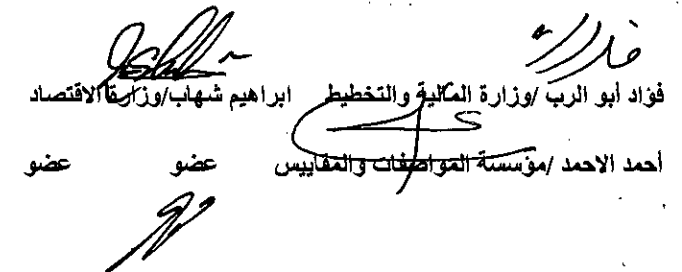 فؤاد أبو الرب /وزارة المالية والتخطيط ابراهيم شهاب/وزارة الاقتصاد
أحمد الاحمد /مؤسسة المواصفات والمقاييس عضو عضو